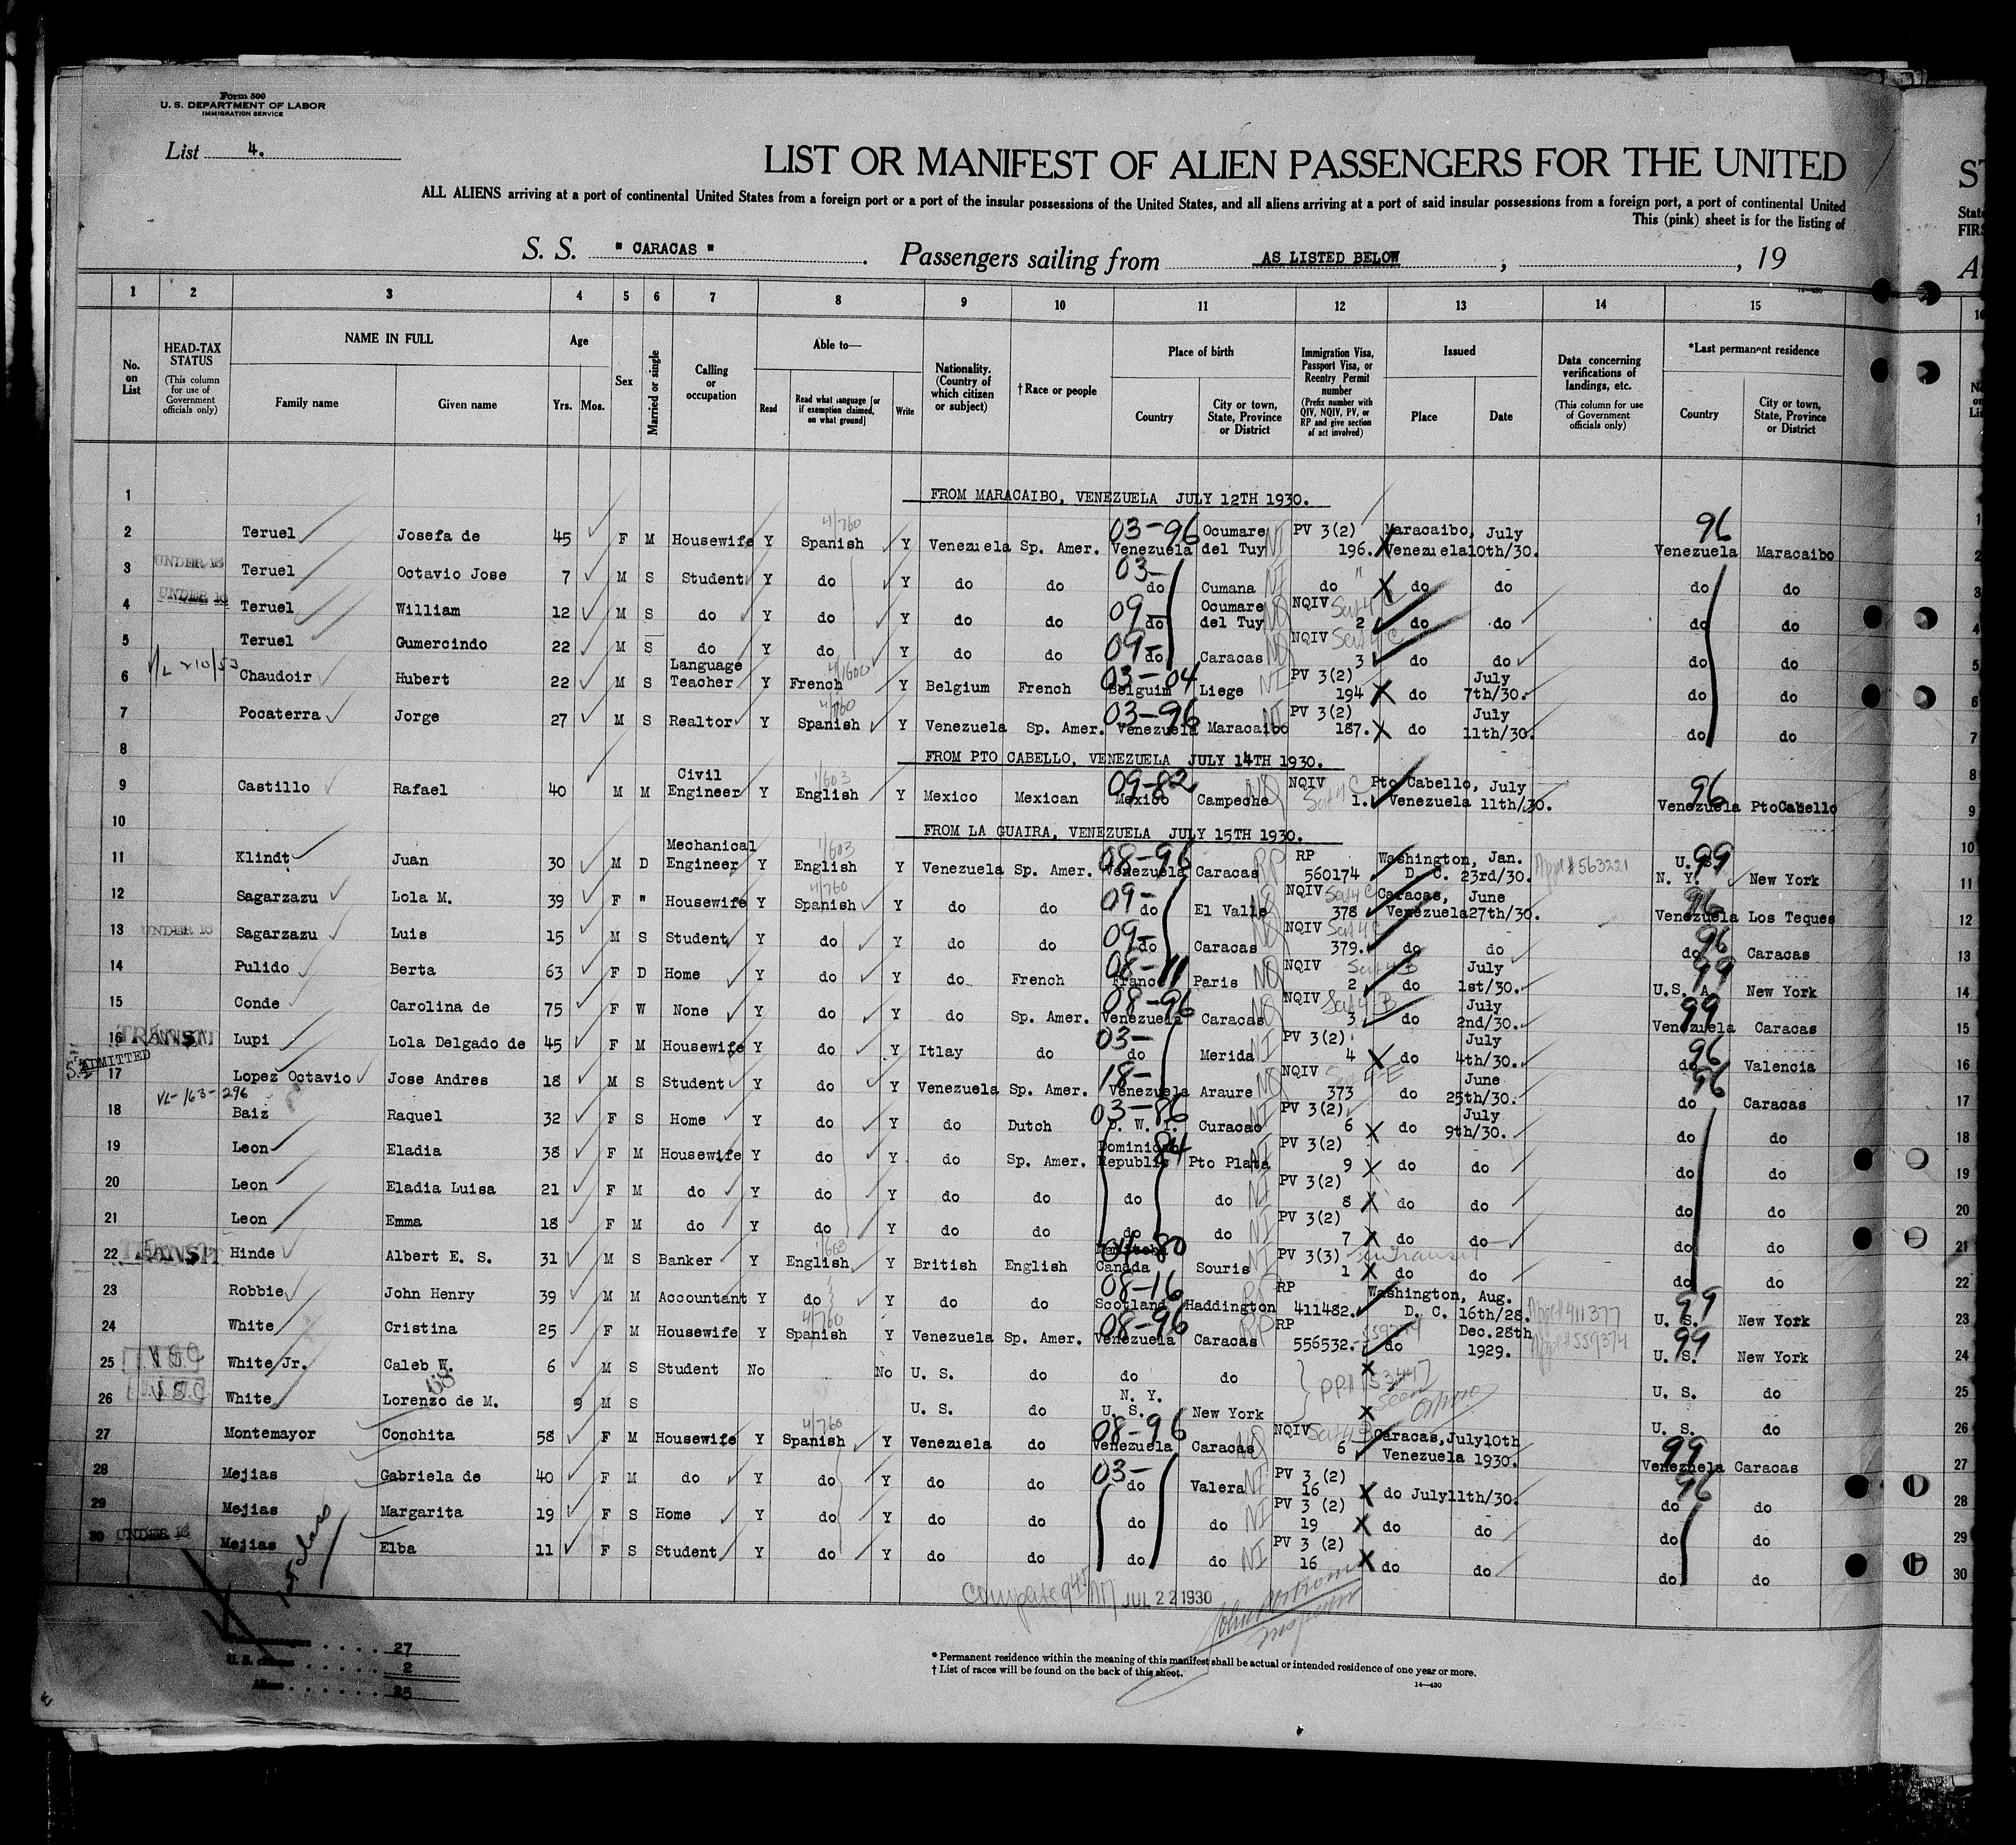 Form 500
U. S. DEPARTMENT OF LABOR
IMMIGRATION SERVICE
List 4.
LIST OR MANIFEST OF ALIEN PASSENGERS FOR THE UNITED
ALL ALIENS arriving at a port of continental United States from a foreign port or a port of the insular possessions of the United States, and all aliens arriving at a port of said insular possessions from a foreign port, a port of continental United
This (pink) sheet is for the listing of
S. S. " CARACAS " . Passengers sailing from AS LISTED BELOW , , 19
14—430
1 2 3 4 5 6 7 8 9 10 11 12 13 14 15
No. on List
HEAD-TAX STATUS (This column for use of Government officials only)
NAME IN FULL
Family name Given name
Age
Yrs. Mos.
Sex
Married or single
Calling or occupation
Able to—
Read Read what language [or if exemption claimed, on what ground] Write
Nationality. (Country of which citizen or subject)
† Race or people
Place of birth
Country City or town, State, Province or District
Immigration Visa, Passport Visa, or Reentry Permit number (Prefix number with QIV, NQIV, PV, or RP and give section of act involved)
Issued
Place Date
Data concerning verifications of landings, etc. (This column for use of Government officials only)
*Last permanent residence
Country City or town, State, Province or District
1 FROM MARACAIBO, VENEZUELA JULY 12TH 1930.
2 Teruel Josefa de 45 F M Housewife Y 4/760 Spanish Y Venezuela Sp. Amer. 03-96 Venezuela Ocumare del Tuy NI PV 3(2) 196. Maracaibo, Venezuela July 10th/30. 96 Venezuela Maracaibo
UNDER 16
3 Teruel Octavio Jose 7 M S Student Y do Y do do 03- do Cumana NI do " do do do do
UNDER 16
4 Teruel William 12 M S do Y do Y do do 09- do Ocumare del Tuy NQ NQIV Sec 4 C 2 do do do do
5 Teruel Gumercindo 22 M S do Y do Y do do 09- do Caracas NQ NQIV Sec 4 C 3 do do do do
6 Chaudoir Hubert 22 M S Language Teacher Y French Y Belgium French 03-04 Belguim Liege NI PV 3(2) 194 do July 7th/30. do do
7 Pocaterra Jorge 27 M S Realtor Y 4/760 Spanish Y Venezuela Sp. Amer. 03-96 Venezuela Maracaibo NI PV 3(2) 187. do July 11th/30. do do
8 FROM PTO CABELLO, VENEZUELA JULY 14TH 1930.
9 Castillo Rafael 40 M M Civil Engineer Y 1/603 English Y Mexico Mexican 09-82 Mexico Campeche NQ NQIV Sec 4 C 1. Pto Cabello, Venezuela July 11th/30. 96 Venezuela PtoCabello
10 FROM LA GUAIRA, VENEZUELA JULY 15TH 1930.
11 Klindt Juan 30 M D Mechanical Engineer Y 1/603 English Y Venezuela Sp. Amer. 08-96 Venezuela Caracas RP RP 560174 Washington, D. C. Jan. 23rd/30. Appl # 563221 U. S. 99 N. Y. New York
12 Sagarzazu Lola M. 39 F " Housewife Y 4/760 Spanish Y do do 09- do El Valle NQ NQIV Sec 4 C 378 Caracas, Venezuela June 27th/30. 96 Venezuela Los Teques
13 UNDER 16 Sagarzazu Luis 15 M S Student Y do Y do do 09- do Caracas NQ NQIV Sec 4 C 379. do do 96 do Caracas
14 Pulido Berta 63 F D Home Y do Y do French 08-11 France Paris NQ NQIV Sec 4 B 2 do July 1st/30. 99 U.S. A. New York
15 Conde Carolina de 75 F W None Y do Y do Sp. Amer. 08-96 Venezuela Caracas NQ NQIV Sec 4 B 3 do July 2nd/30. 99 Venezuela Caracas
16 TRANSIT Lupi Lola Delgado de 45 F M Housewife Y do Y Itlay do 03- do Merida NI PV 3(2) 4 do July 4th/30. 96 do Valencia
ADMITTED
17 Lopez Octavio Jose Andres 18 M S Student Y do Y Venezuela Sp. Amer. 18- Venezuela Araure NQ NQIV 4-E 373 do June 25th/30. 96 do Caracas
VL-163-296
18 Baiz Raquel 32 F S Home Y do Y do Dutch 03-86 D. W. I. Curacao NI PV 3(2) 6 do July 9th/30. do do
19 Leon Eladia 38 F M Housewife Y do Y do Sp. Amer. Dominican Republic 84 Pto Plata NI PV 3(2) 9 do do do do
20 Leon Eladia Luisa 21 F M do Y do Y do do do do NI PV 3(2) 8 do do do do
21 Leon Emma 18 F M do Y do Y do do do do NI PV 3(2) 7 do do do do
22 TRANSIT Hinde Albert E. S. 31 M S Banker Y 1/603 English Y British English 04-80 Canada Souris NI PV 3(3) in Transit 1 do do do do
23 Robbie John Henry 39 M M Accountant Y do Y do do 08-16 Scotland Haddington RP RP 411482. Washington, D. C. Aug. 16th/28. Appl # 411377 99 U. S. New York
24 White Cristina 25 F M Housewife Y 4/760 Spanish Y Venezuela Sp. Amer. 08-96 Venezuela Caracas RP RP 556532. do Dec.28th 1929. Appl # 559374 99 U. S. New York
25 U S C White Jr. Caleb W. 6 M S Student No No U. S. do do do U. S. do
26 U S C White Lorenzo de M. 9 M S U. S. do N. Y. U. S. New York U. S. do
27 Montemayor Conchita 58 F M Housewife Y 4/760 Spanish Y Venezuela do 08-96 Venezuela Caracas NQ NQIV Sec 4 B 6 Caracas, Venezuela July10th 1930. 99 Venezuela Caracas
28 Mejias Gabriela de 40 F M do Y do Y do do 03- do Valera NI PV 3 (2) 16 do July11th/30. 96 do do
29 Mejias Margarita 19 F S Home Y do Y do do do do NI PV 3 (2) 19 do do do do
30 UNDER 16 Mejias Elba 11 F S Student Y do Y do do do do NI PV 3 (2) 16 do do do do
JUL 22 1930
27
U. S. 2
Aliens 25
* Permanent residence within the meaning of this manifest shall be actual or intended residence of one year or more.
† List of races will be found on the back of this sheet.
14—430